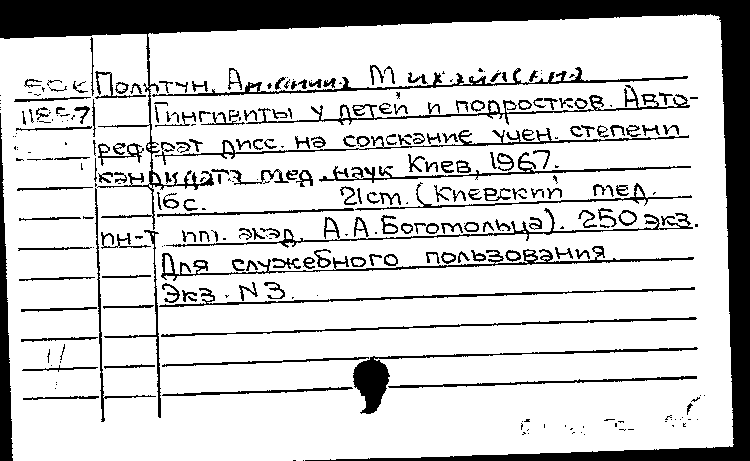 Политун, Антонина Михайловна
11857 Гингивиты у детей и подростков. Авто-
реферат дисс. на соискание учен. степени
кандидата мед. наук Киев, 1967.
16с. 21см. (Киевский мед.
ин-т им. акад. А.А.Богомольца). 250 экз.
Для служебного пользования.
Экз. N3.